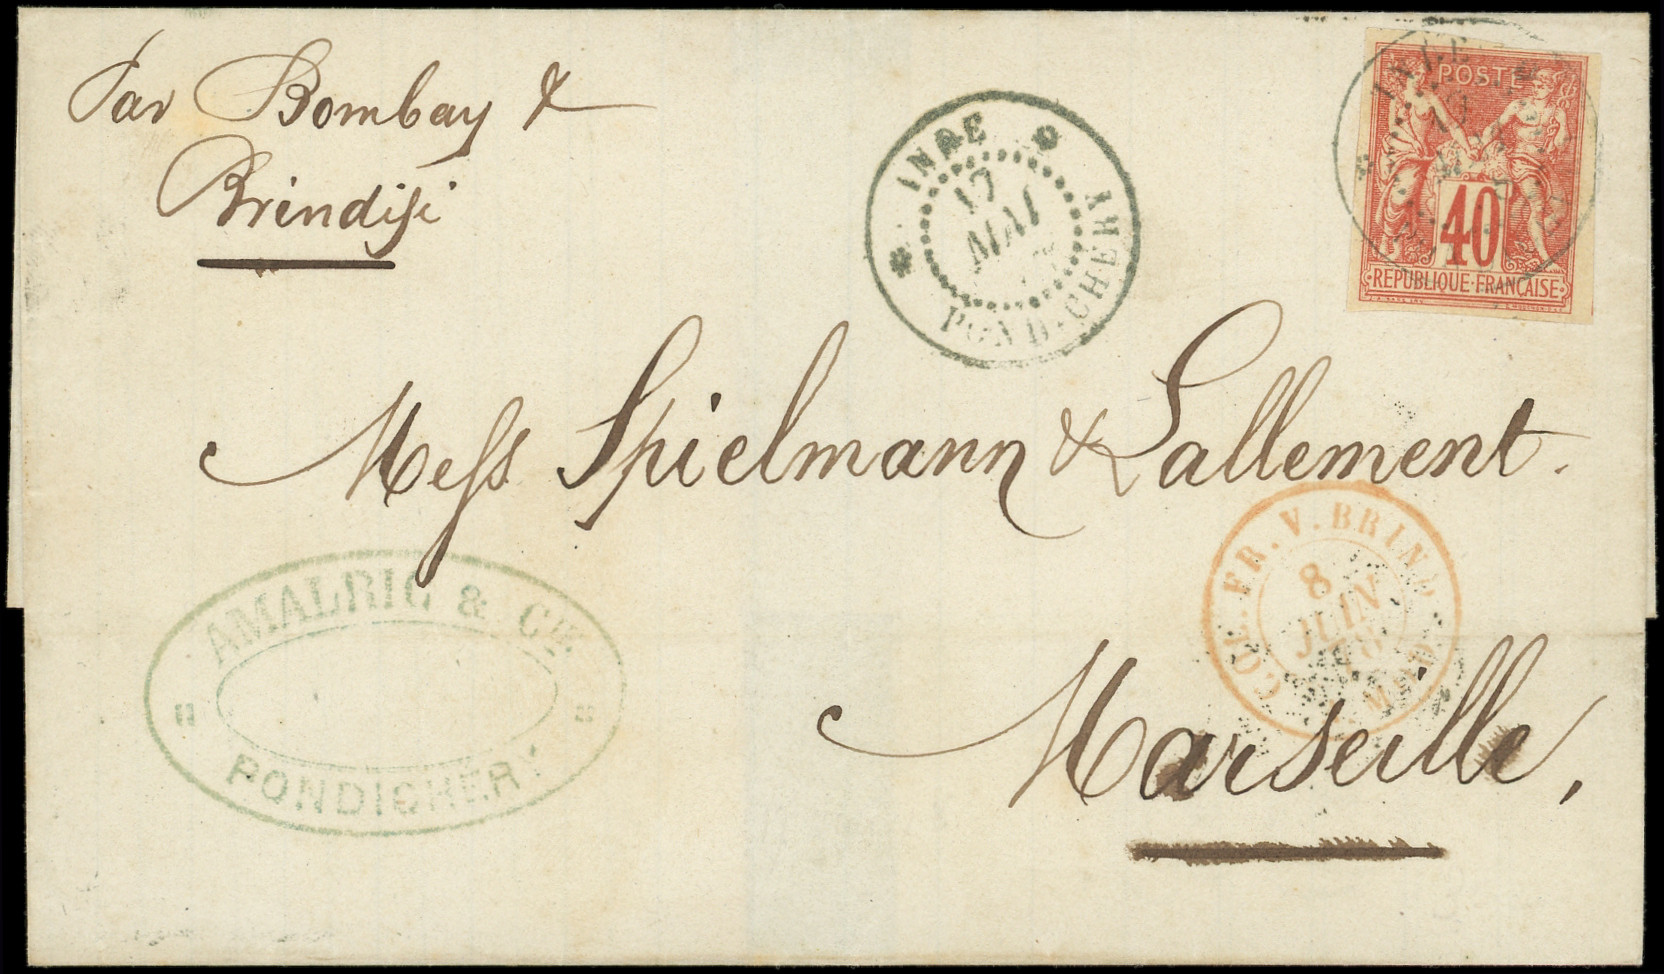 Par Bombay &
Brindisi
INDE
17
MAI
POND-CHERY
INDE
POSTE
40
REPUBLIQUE·FRANÇAISE
Mess Spielmann & Lallement.
COL. FR. V. BRIND.
8
JUIN
78
AMALRIC & CIE
PONDICHERY
Marseille,